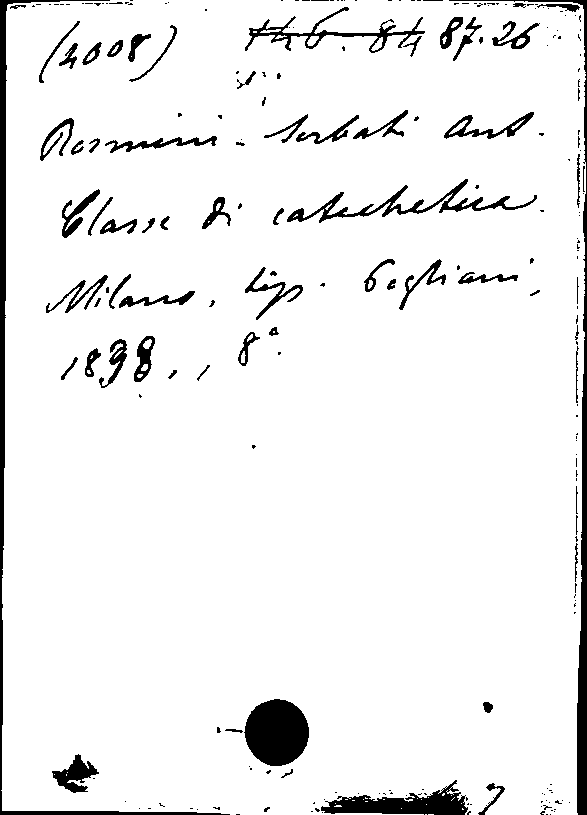 (4008) 146. 84 87.26
Rosmini - Serbati Ant.
Classe di catechetica.
Milano, tip. Pogliani,
1838., 8°.